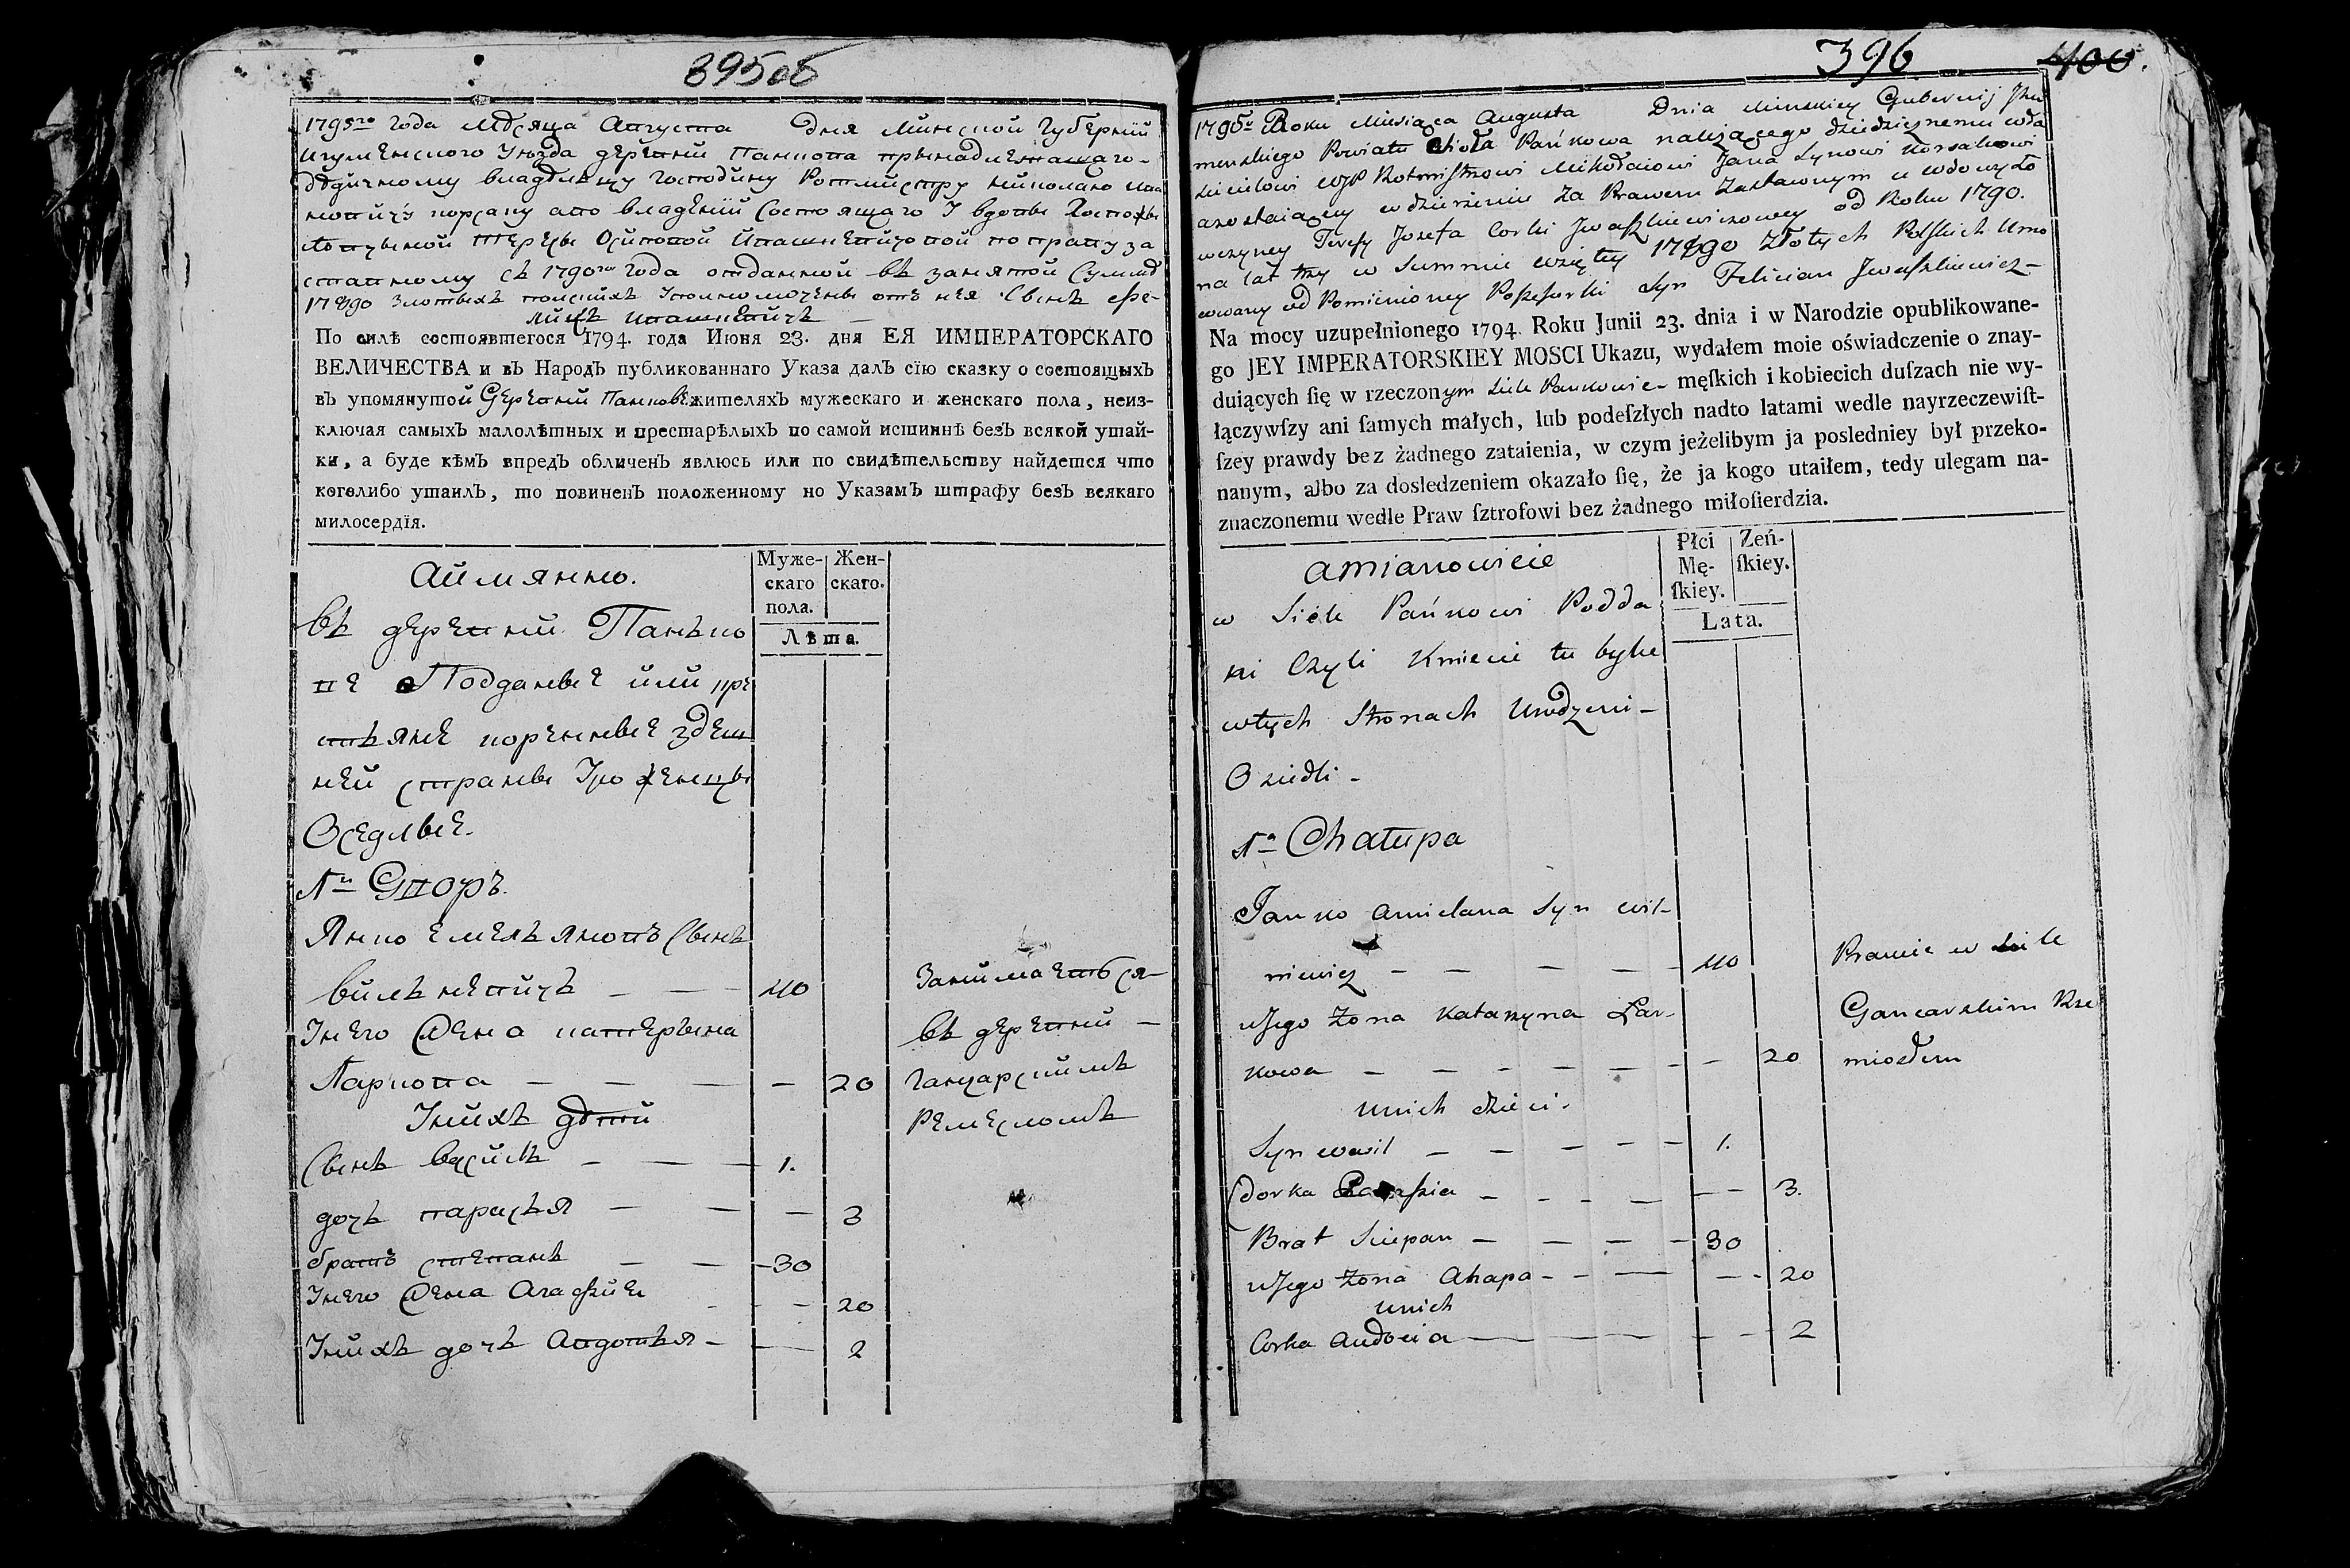 395об
1795го года Мѣсяца Августа дня Минской Губерніи
Игуменского Уѣзда деревни Панкова
дѣдичному владѣльцу Господину Ротмистру Николаю
владѣніи состоящаго У вдовы Госпожы
Терезы Осиповой Ивашкевичовой по праву за
ставному съ 1790го года отданной въ
злотыхъ польскихъ отъ нея сынъ Фе-
лиціянъ Ивашкевичъ
По силѣ состоявшегося 1794. года Июня 23. дня ЕЯ ИМПЕРАТОРСКАГО
ВЕЛИЧЕСТВА и въ Народъ публикованнаго Указа далъ сію сказку о состоящыхъ
въ упомянутой Деревни Панковѣ жителяхъ мужескаго и женскаго пола, неиз-
ключая самыхъ малолѣтных и престарѣлыхъ по самой истиннѣ безъ всякой утай-
ки, а буде кѣмъ впредь обличенъ явлюсь или по свидѣтельству найдется что
коголибо утаилъ, то повиненъ положенному по Указамъ штрафу безъ всякаго
милосердія.
Аимянно.
Муже-
скаго
пола.
Жен-
скаго.
Лѣта.
въ деревни Панько
ве Подданые или кре
стьяне коренные здеш
ней страны
Оседлые.
1й Дворъ.
Янко Емельяновъ сынъ
вильневичь — — 40
Унего Жена катерына
Ларкова — — — — 20
Унихъ дѣти
сынъ василь — — 1.
дочь парасья — — — 3
братъ степанъ — — 30
Унего Жена Агафия — — 20
Унихъ дочь Авдотья — — 2
Занимается
въ деревни —
ганчарскимъ
ремесломъ
396
400.
1795o Roku Miesiąca Augusta Dnia Minskiey Gubernij Ihu
menskiego Powiatu Sioła Pańkowa należącego dziedzicznemu wła
scicielowi WJP Rotmistrzowi Mikołaiowi Jana Synowi Korsakowi
azostaiącey w dzierżenie za Prawem Zastawnym u wdowy
Teresy Jozefa Corki Jwaszkiewiczowey od Roku 1790.
na lat trzy w Summie wziętey Złotych Polskich Umo
cowany od Pomienioney Possesorki Syn Felician Jwaszkiewicz —
Na mocy uzupełnionego 1794. Roku Junii 23. dnia i w Narodzie opublikowane-
go JEY IMPERATORSKIEY MOSCI Ukazu, wydałem moie oświadczenie o znay-
duiących ſię w rzeczonym Siele Pankowie — męſkich i kobiecich duſzach nie wy-
łączywſzy ani ſamych małych, lub podeſzłych nadto latami wedle nayrzeczewiſt-
ſzey prawdy bez żadnego zataienia, w czym jeżelibym ja posledniey był przeko-
nanym, albo za dosledzeniem okazało ſię, że ja kogo utaiłem, tedy ulegam na-
znaczonemu wedle Praw ſztrofowi bez żadnego miłoſierdzia.
amianowicie
Płci
Mę-
ſkiey.
Zeń-
ſkiey.
Lata.
w Siele Pańkowi Podda
ni Czyli Kmiecie tu
wtych Stronach Urodzeni —
Osiedli —
1a Chałupa
Janko amielana Syn wil-
niewicz — — — — — 40
uJego Zona Katarzyna Lar-
kowa — — — — — — — 20
unich dzieci.
Syn wasil — — — — — 1.
Corka Parassia — — — — — — 3.
Brat Sciepan — — — — 30
uJego Zona Ahapa — — — — — 20
unich
Corka Audocia — — — — — 2
Prawie w Siele
Gancarskim Rze
miosłem